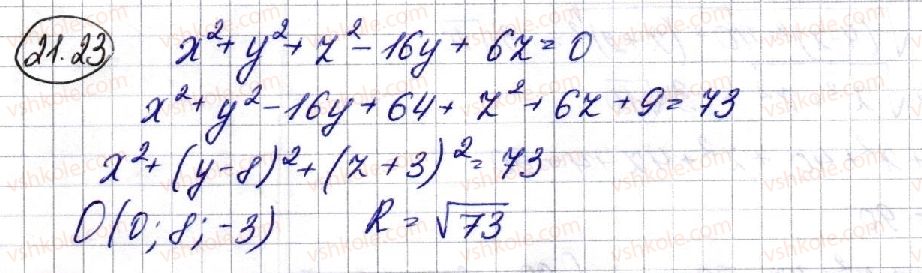 21.23 x² + y² + z² - 16y + 6z = 0
x² + y² - 16y + 64 + z² + 6z + 9 = 73
x² + (y - 8)² + (z + 3)² = 73
O(0; 8; -3) R = √73